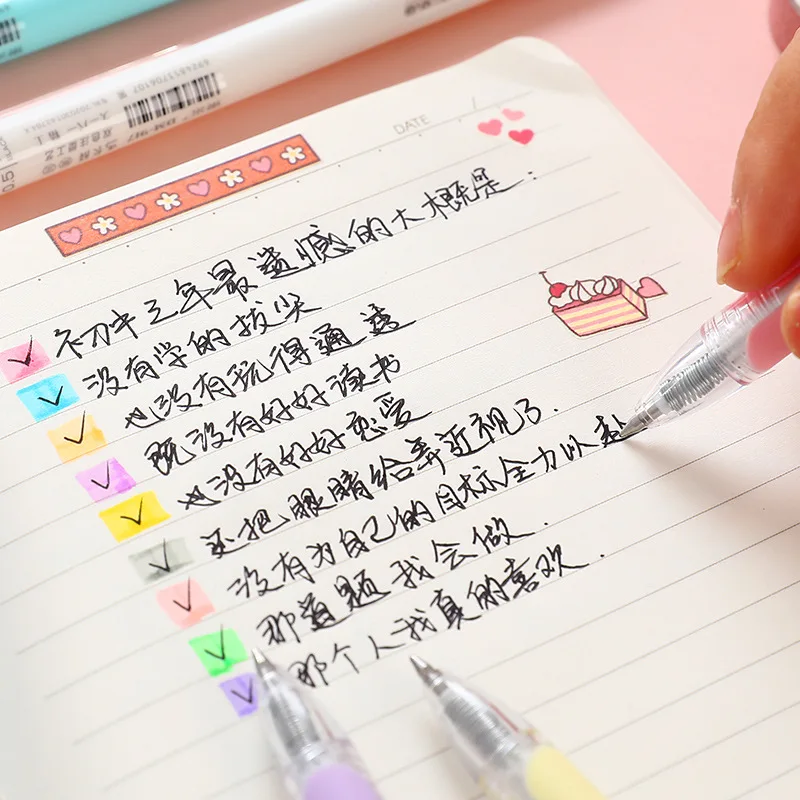 DATE /
初中三年最遗憾的大概是：
没有学的拔尖
也没有玩得通透
既没有好好读书
也没有好好恋爱
还把眼睛给弄近视了.
没有为自己的目标全力以赴
那道题我会做.
那个人我真的喜欢.